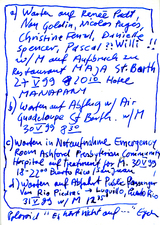 a) Warten auf Renée Padt
Nan Goldin, Nicolas Pagès,
Christine Fenzl, Danielle
Spencer, Pascal ?: Willi !!
w/M auf Aufbruch zu
Restaurant MAYA St. Barth
27 V 99 @ 20 10 Hotel
MANAPANY
b) Warten auf Abflug w/ Air
Guadeloupe St Barth. w/M
30 V 99 8 30
c) Warten in Notaufnahme Emergency
Room Ashford Presbyterian Community
Hospital auf Treatment for M. 30 V 99
18-22 00 Puerto Rico San Juan
d) Warten auf Abfahrt Public Passenger
Van Rio Piedras → Luquillo, Puerto Rico
31 V 99 w/M 12 25
Polaroid: "Es hört nicht auf..."